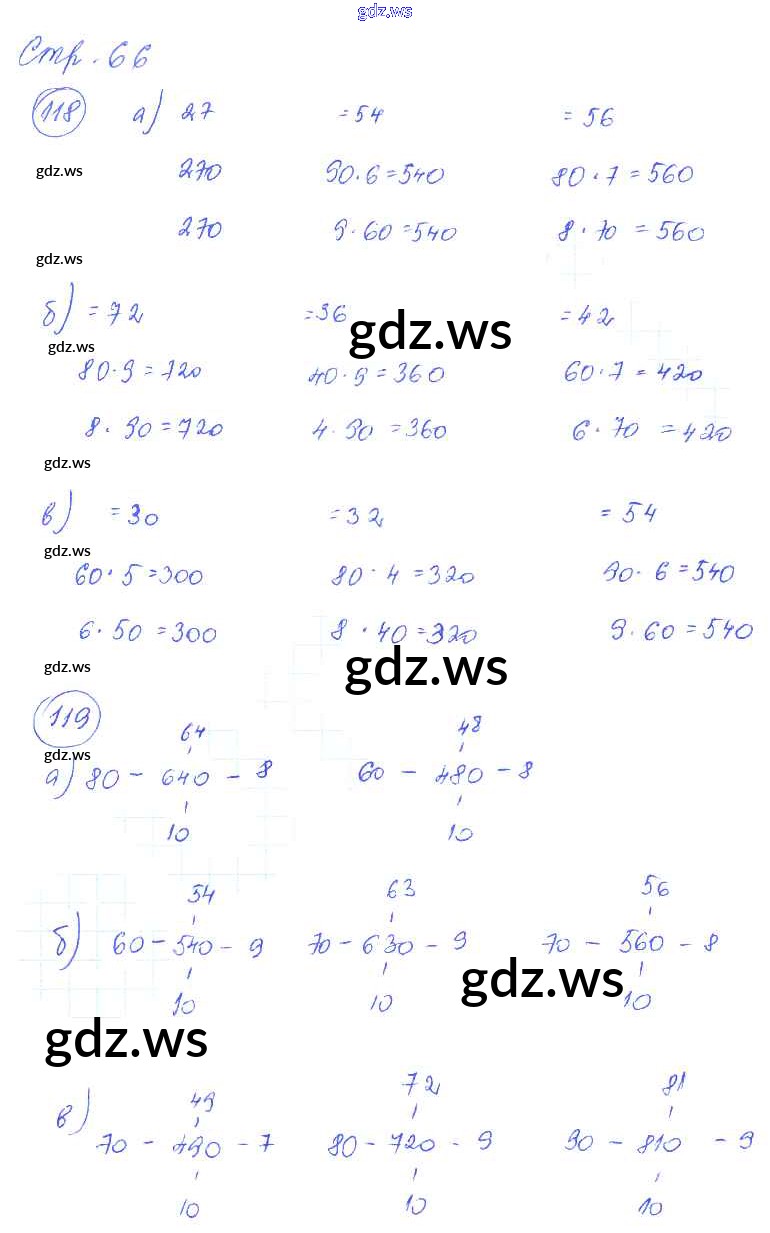 gdz.ws
Стр. 66
118 а) 27 = 54 = 56
gdz.ws 270 90·6=540 80·7=560
270 9·60=540 8·70=560
gdz.ws
б) =72 =36 =42
gdz.ws
gdz.ws 80·9=720 40·9=360 60·7=420
8·90=720 4·90=360 6·70=420
gdz.ws
в) =30 =32 =54
gdz.ws
60·5=300 80·4=320 90·6=540
6·50=300 8·40=320 9·60=540
gdz.ws gdz.ws
119 64 48
gdz.ws
а) 80 - 640 - 8 60 - 480 - 8
10 10
54 63 56
б) 60 - 540 - 9 70 - 630 - 9 70 - 560 - 8
gdz.ws
10 10 10
gdz.ws
49 72 81
в) 70 - 490 - 7 80 - 720 - 9 90 - 810 - 9
10 10 10